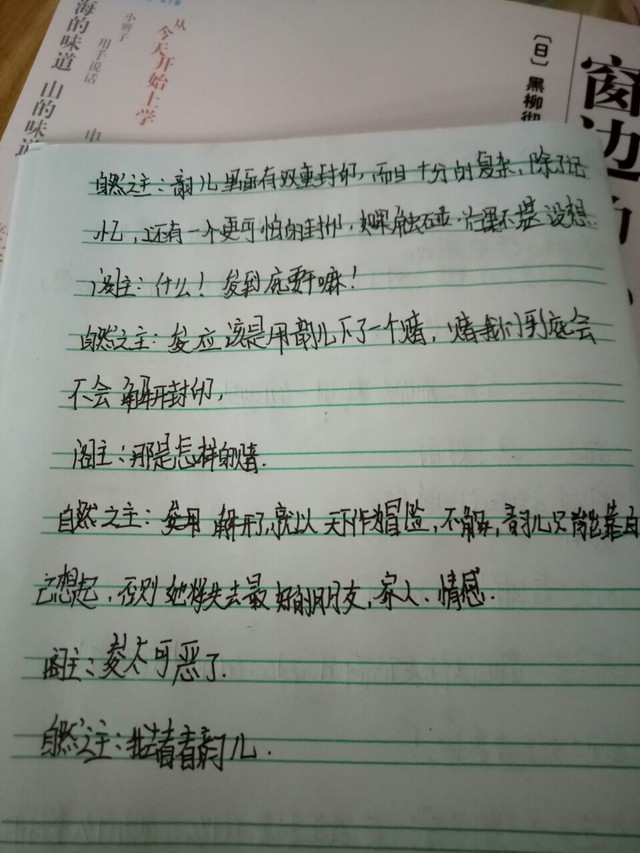 海的味道 山的味道
小辫子
用手说话
从今天开始上学
[日] 黑柳彻
窗边
自然之主：韵儿里面有双重封印，而且十分的复杂，除了记
忆，还有一个更可怕的封印，如果触碰 后果不堪设想
阁主：什么！ 到底要干嘛！
自然之主： 应该是用韵儿下了一个赌，赌我们到底会
不会解开封印，
阁主：那是怎样的赌.
自然之主： 解开了，就以天下作为冒险，不解，韵儿只能靠自
己想起，否则她将失去最好的朋友，家人、情感.
阁主： 太可恶了.
自然之主： 看韵儿.